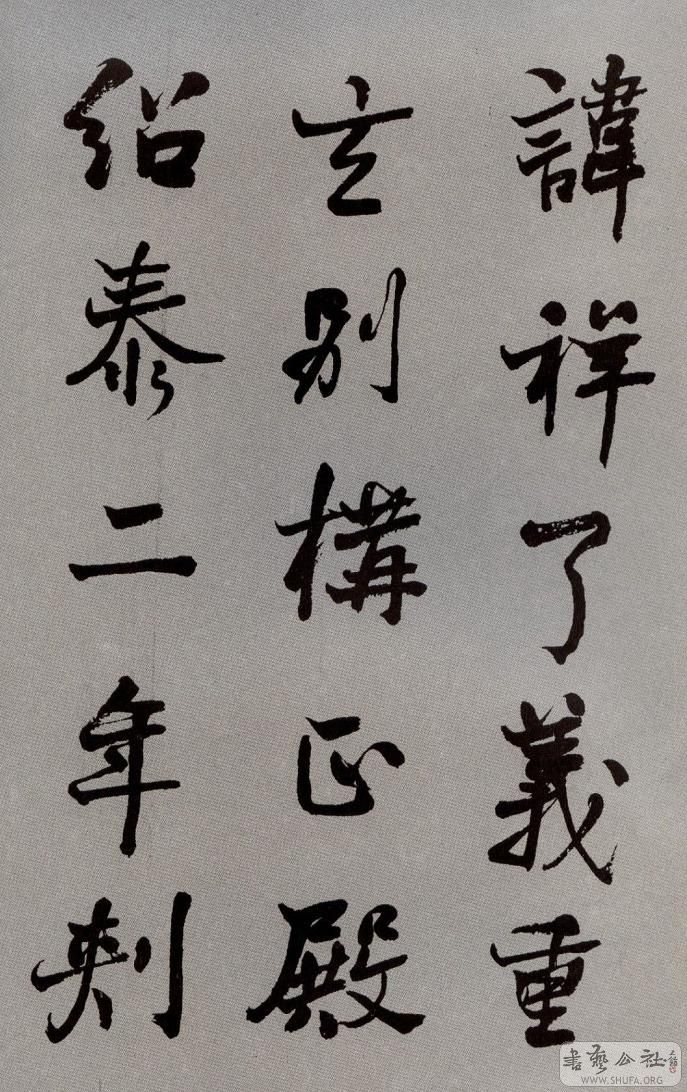 諱祥了義重
玄别構正殿
紹泰二年刺
書藝公社
WWW.SHUFA.ORG